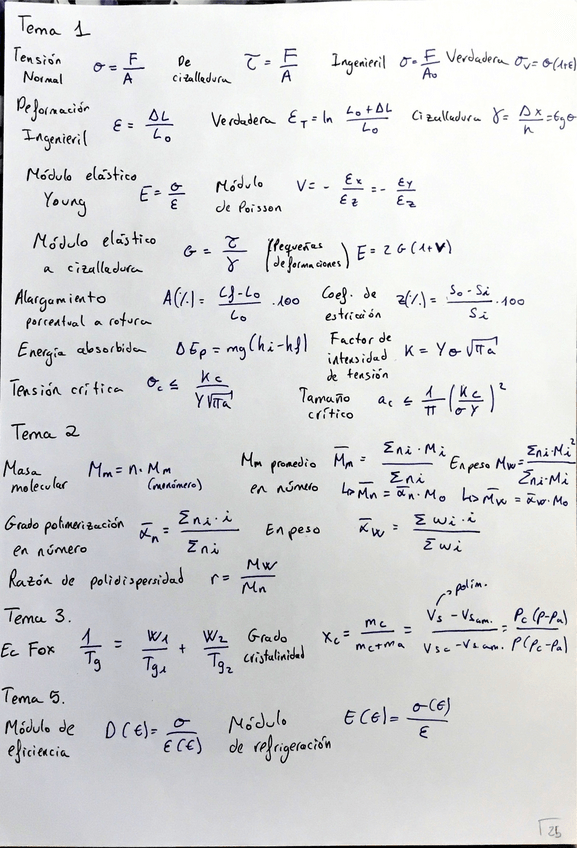 Tema 1
Tensión Normal σ = F/A De cizalladura τ = F/A Ingenieril σ = F/A₀ Verdadera σᵥ = σ(1+ε)
Deformación Ingenieril ε = ΔL/L₀ Verdadera ε_T = ln (L₀+ΔL)/L₀ Cizalladura γ = Δx/h = tg θ
Módulo elástico Young E = σ/ε Módulo de Poisson V = - εx/εz = - εy/εz
Módulo elástico a cizalladura G = τ/γ (Pequeñas deformaciones) E = 2G(1+V)
Alargamiento porcentual a rotura A(%) = (Lf-L₀)/L₀ · 100 Coef. de estricción z(%) = (S₀-Si)/Si · 100
Energía absorbida ΔEp = mg(hi-hf) Factor de intensidad de tensión K = Yσ√(πa)
Tensión crítica σc ≤ Kc/(Y√(πa)) Tamaño crítico ac ≤ 1/π (Kc/(σY))²
Tema 2
Masa molecular Mm = n · Mm (monómero) Mm promedio en número M̄m = Σni·Mi/Σni En peso Mw = Σni·Mi²/Σni·Mi
↳ M̄n = ᾱn·M₀ ↳ M̄w = ᾱw·M₀
Grado polimerización en número ᾱn = Σni·i/Σni En peso ᾱw = Σwi·i/Σwi
Razón de polidispersidad r = Mw/Mn
Tema 3.
Ec Fox 1/Tg = W₁/Tg₁ + W₂/Tg₂ Grado cristalinidad xc = mc/(mc+ma) = (Vs - Vsam.)/(Vsc - Vsam.) = ρc(ρ-ρa)/ρ(ρc-ρa)
polim.
Tema 5.
Módulo de eficiencia D(t) = σ/ε(t) Módulo de refrigeración E(t) = σ(t)/ε
25